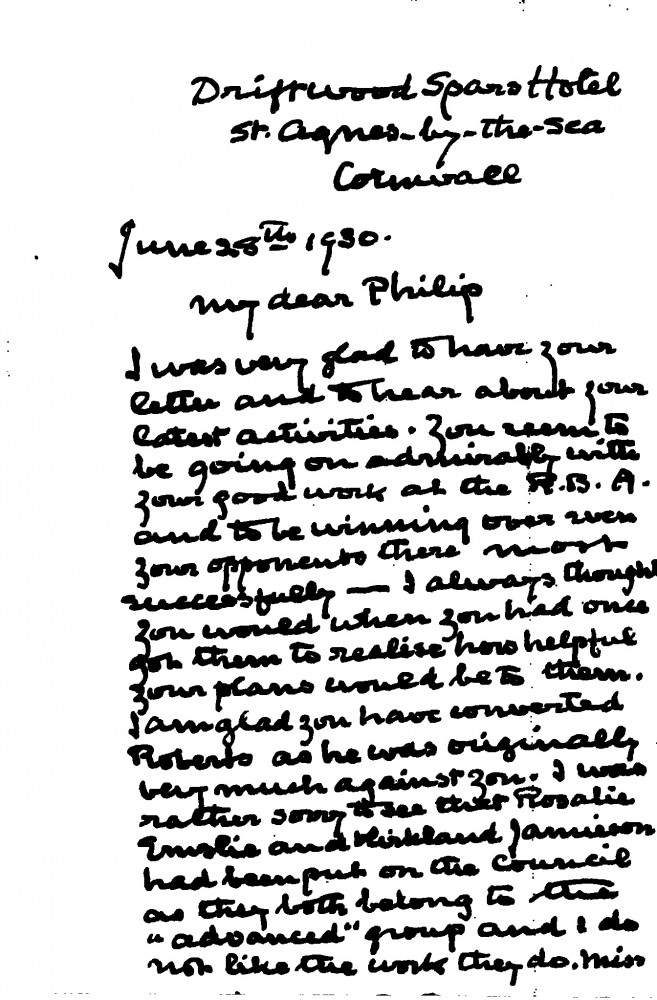 Driftwood Spars Hotel
St. Agnes-by-the-Sea
Cornwall
June 28th 1930.
My dear Philip
I was very glad to have your
letter and to hear about your
latest activities. You seem to
be going on admirably with
your good work at the R.B.A.
and to be winning over even
your opponents there most
successfully — I always thought
you would when you had once
got them to realise how helpful
your plans would be to them.
I am glad you have converted
Roberts as he was originally
very much against you. I was
rather sorry to see that Rosalie
Emslie and Kirkland Jamieson
had been put on the Council
as they both belong to the
"advanced" group and I do
not like the work they do. Miss